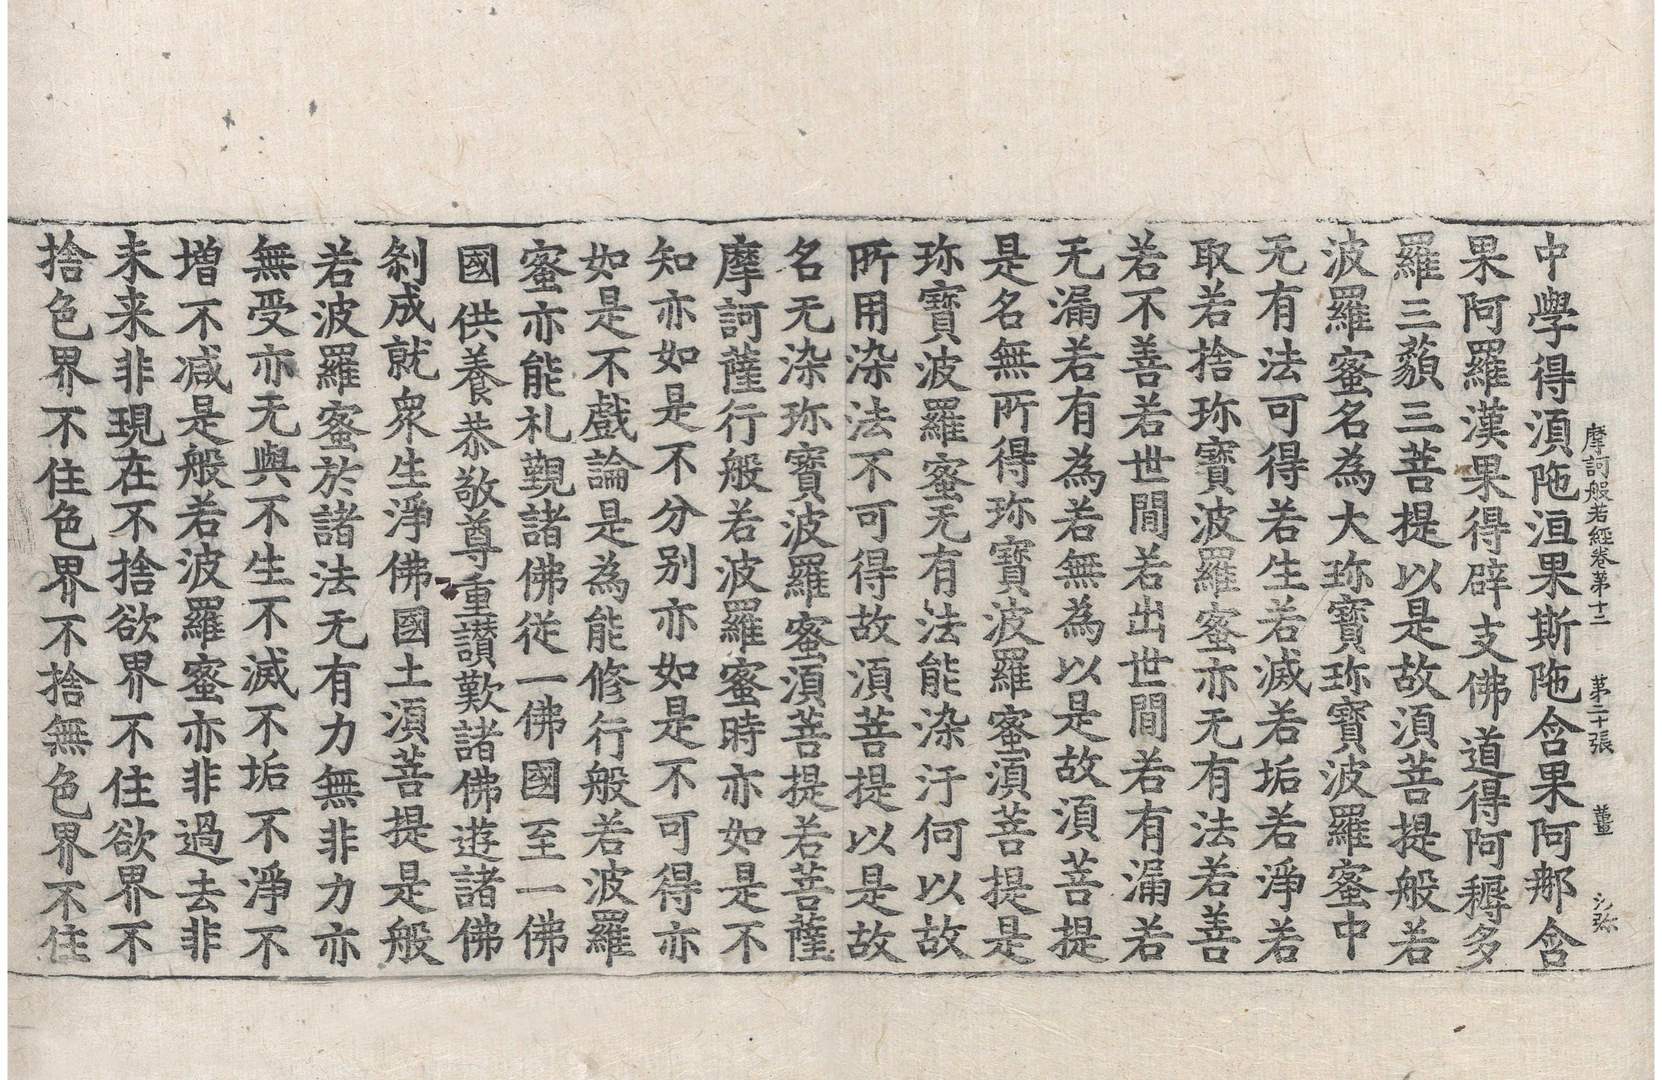 摩訶般若經卷第十三 第二十張 薑 沙弥
中學得湏陁洹果斯陁含果阿那含
果阿羅漢果得辟支佛道得阿耨多
羅三藐三菩提以是故湏菩提般若
波羅蜜名為大珎寶珎寶波羅蜜中
无有法可得若生若滅若垢若淨若
取若捨珎寶波羅蜜亦无有法若善
若不善若世間若出世間若有漏若
无漏若有為若無為以是故湏菩提
是名無所得珎寶波羅蜜湏菩提是
珎寶波羅蜜无有法能染汙何以故
所用染法不可得故湏菩提以是故
名无染珎寶波羅蜜湏菩提若菩薩
摩訶薩行般若波羅蜜時亦如是不
知亦如是不分别亦如是不可得亦
如是不戲論是為能修行般若波羅
蜜亦能礼觐諸佛從一佛國至一佛
國供養恭敬尊重讃歎諸佛遊諸佛
刹成就衆生淨佛國土湏菩提是般
若波羅蜜於諸法无有力無非力亦
無受亦无與不生不滅不垢不淨不
增不减是般若波羅蜜亦非過去非
未来非現在不捨欲界不住欲界不
捨色界不住色界不捨無色界不住